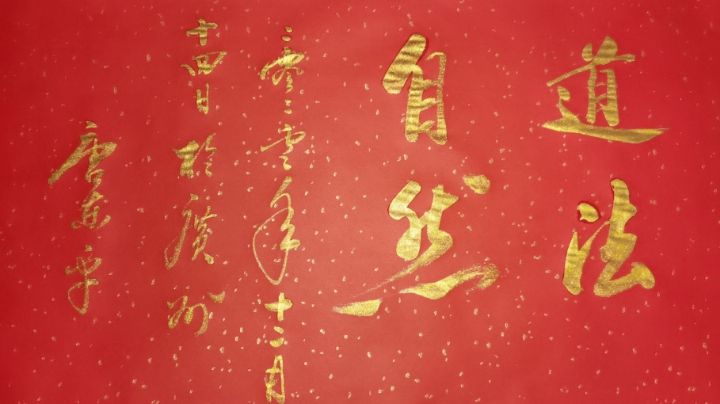 道法
自然
二零二零年十二月
十四日於廣州
唐东平